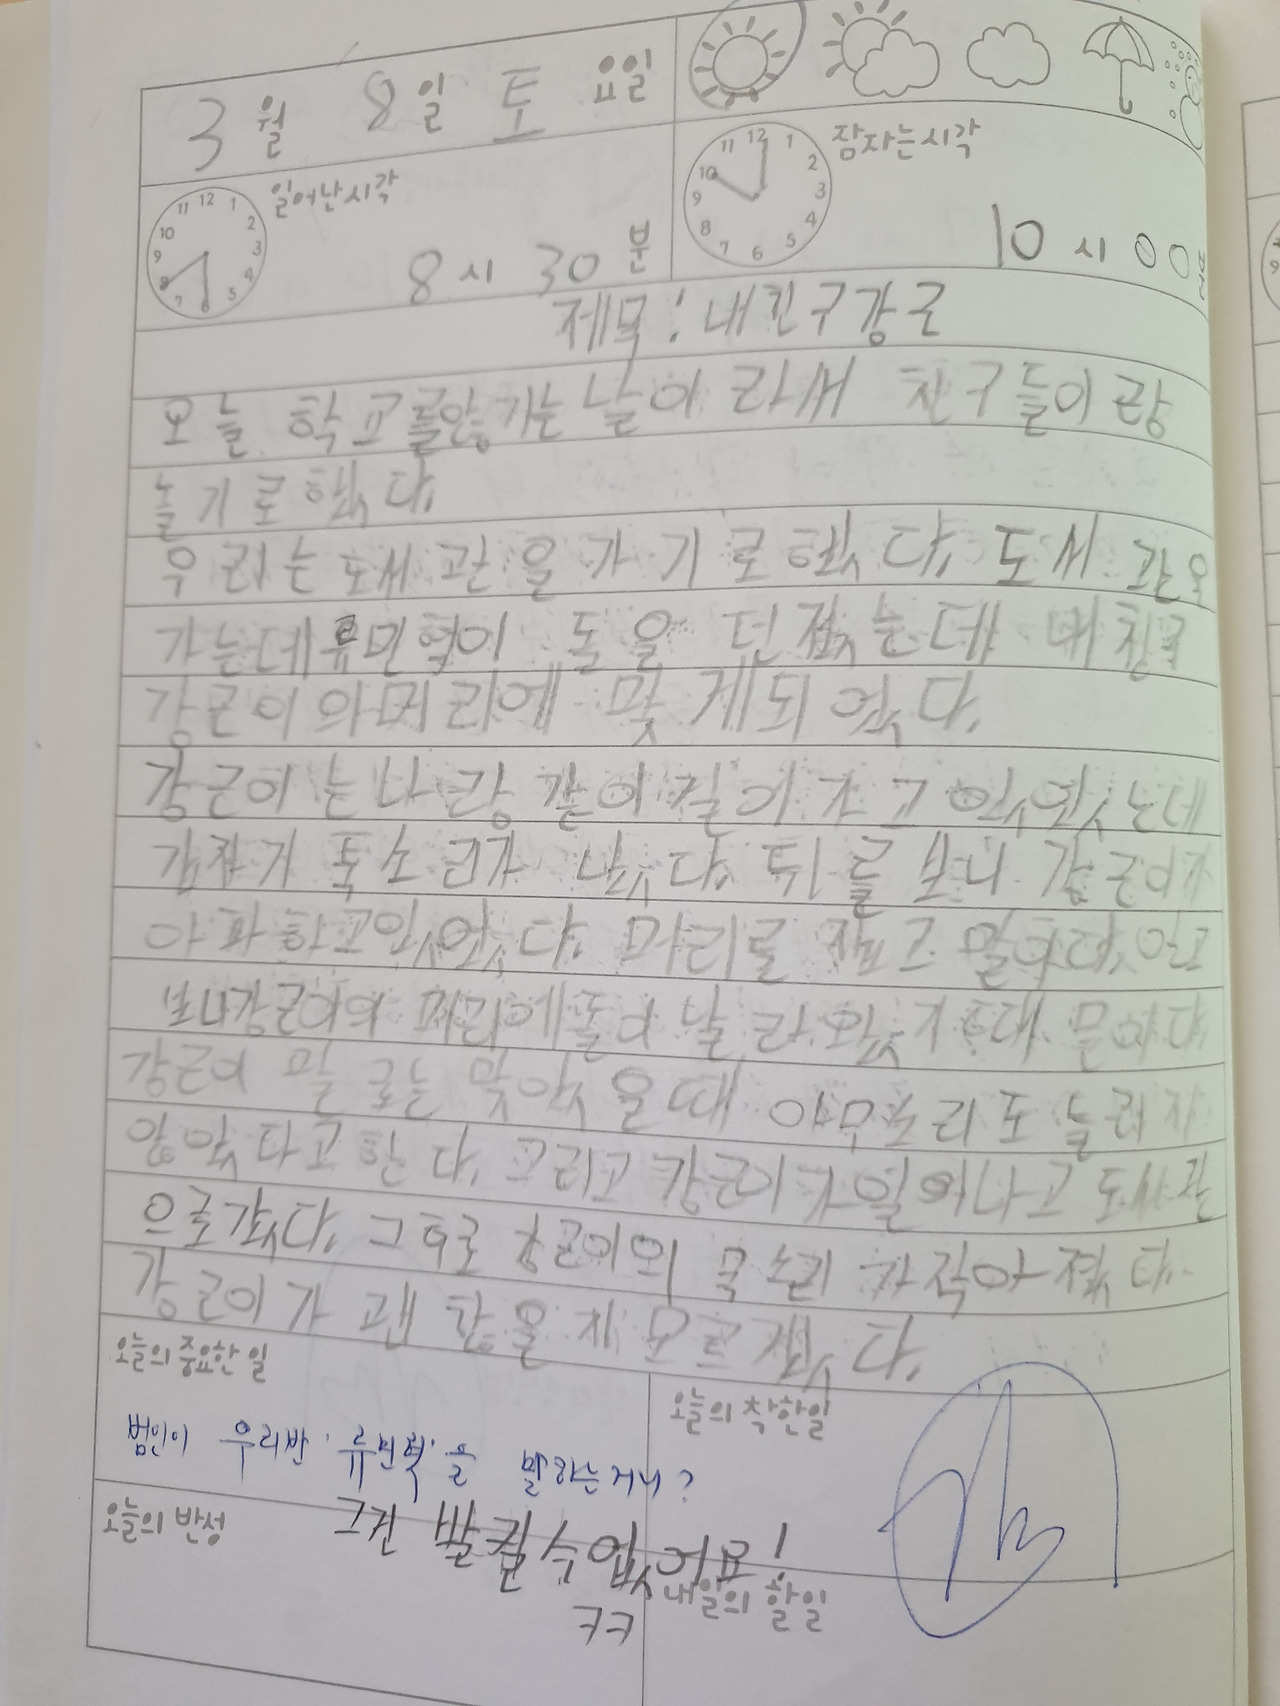 3월 8일 토 요일
일어난시각
8시 30분
잠자는시각
10시 00분
제목:내친구강근
오늘 학교를않가는날이라서 친구들이랑
놀기로했다.
우리는도서관을가기로했다. 도서관을
가는데류민혁이 돌을 던졌는데 내친구
강근이의머리에 맞게되었다.
강근이는나랑같이걸어가고있었는데
갑자기 툭소리가 났다. 뒤를보니 강근이가
아파하고있었다. 머리를 잡고 말이다.
보니강근이의 머리에돌이날라왔 말이다
강근이 말로는 맞았을때 아무소리도 들리지
않았다고한다. 그리고강근이가일어나고도서관
으로갔다. 그후로 강근이의 목소리가작아졌다.
강근이가 괜찮을지모르겠다.
오늘의 중요한 일
오늘의 착한일
범인이 우리반 '류민혁'을 말하는거니?
오늘의 반성
그건 발킬수없어요!
내일의 할일
ㅋㅋ